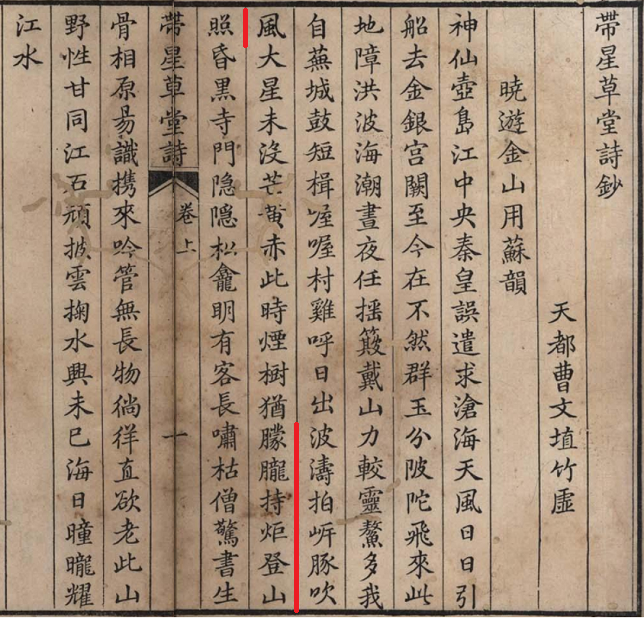 帶星草堂詩鈔
天都曹文埴竹虛
曉遊金山用蘇韻
神仙壺島江中央秦皇誤遣求滄海天風日日引
船去金銀宮闕至今在不然群玉分陂陀飛來此
地障洪波海潮晝夜任揺簸戴山力較靈鰲多我
自蕪城鼓短楫喔喔村雞呼日出波濤拍岍豚吹
風大星未沒芒黄赤此時煙樹猶朦朧持炬登山
照昏黑寺門隐隱松龕明有客長嘯枯僧驚書生
帶星草堂詩 卷上 一
骨相原易識携來吟管無長物徜徉直欲老此山
野性甘同江石頑披雲掬水興未已海日曈曨耀
江水